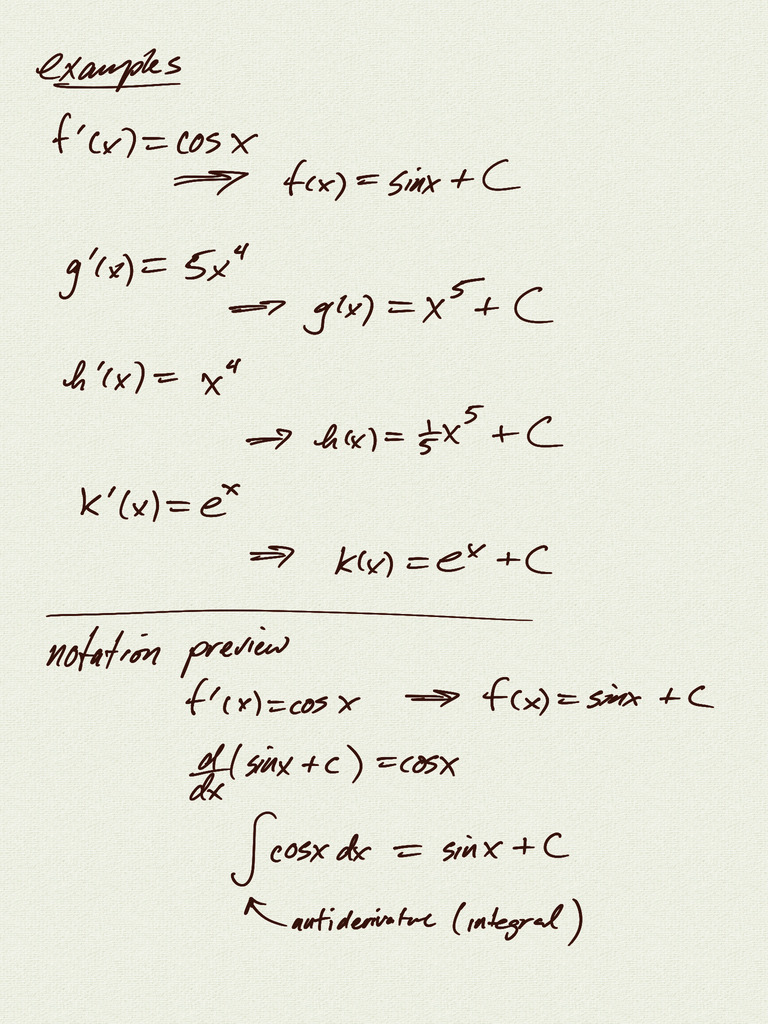 examples
f'(x) = cos x
⟹ f(x) = sinx + C
g'(x) = 5x⁴
⟹ g(x) = x⁵ + C
h'(x) = x⁴
⟹ h(x) = 1/5 x⁵ + C
k'(x) = eˣ
⟹ k(x) = eˣ + C
notation preview
f'(x) = cos x ⟹ f(x) = sinx + C
d/dx (sinx + c) = cosx
∫ cosx dx = sinx + C
antiderivative (integral)